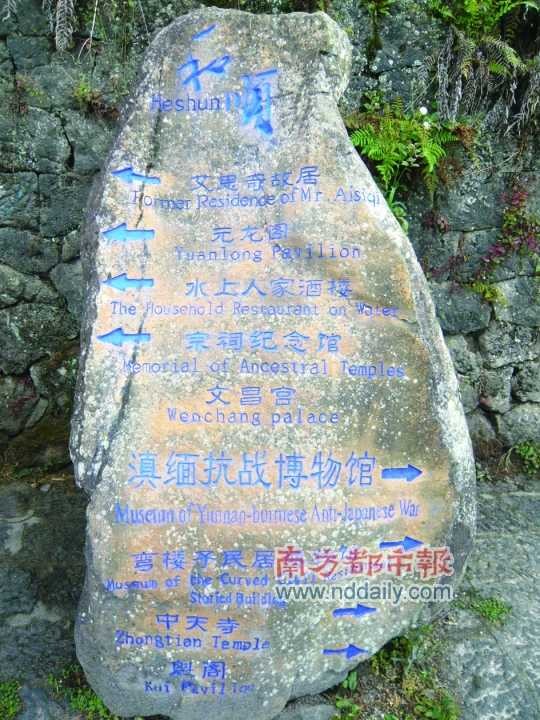 和顺
Heshun
艾思奇故居
Former Residence of Mr. Aisiqi
元龙阁
Yuanlong Pavilion
水上人家酒楼
The Household Restaurant on Water
宗祠纪念馆
Memorial of Ancestral Temples
文昌宫
Wenchang palace
滇缅抗战博物馆
Museum of Yunnan-burmese Anti-Japanese War
弯楼子民居
南方都市報
Museum of the Curved
Storied Building
www.nddaily.com
中天寺
Zhongtian Temple
魁阁
Kui Pavilion